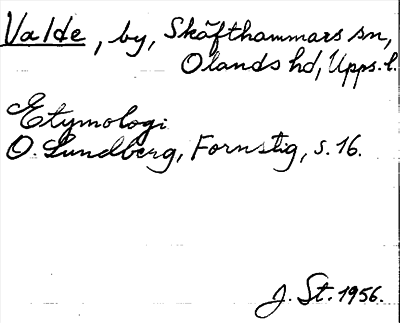 Valde, by, Skäfthammars sn,
Olands hd, Upps. l.
Etymologi
O. Lundberg, Fornstig, s. 16.
J. St. 1956.